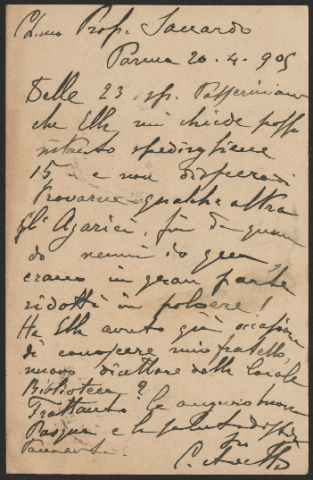 Ch.mo Prof. Saccardo
Parma 20. 4. 905
Delle 23 sp. Passeriniane
che Ella mi chiede posso
intanto spedirgliene
15 e non dispero di
trovarne qualche altra
gli Agarici, fin da quan
do venni io qui
erano in gran parte
ridotti in polvere!
Ha Ella avuto già occasione
di conoscere mio fratello,
nuovo direttore della locale
Biblioteca?
Frattanto le auguro buona
Pasqua e la saluto
C.